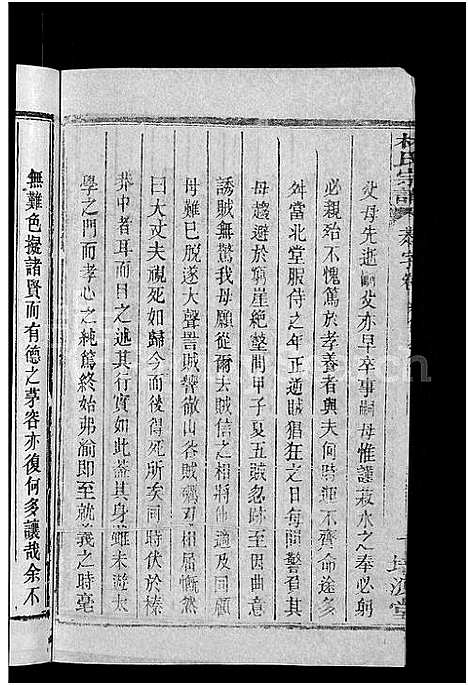 林氏宗譜
父母先逝嗣父亦早卒事嗣母惟謹菽水之奉必躬
必親殆不愧篤於孝養者與夫何時逕不齊命途多
舛當北堂服侍之年正逋賊猖狂之日每聞警而負
母趨避於窮崖絕壑間甲子夏五賊忽跡至因曲意
誘賊無驚我母願從爾去賊信之相將他適及回顧
母難已脫遂大聲詈賊聲徹山谷賊礪刃相屠慨然
曰大丈夫視死如歸今而後得死所矣同時伏於榛
莽中者耳而目之述其行實如此蓋其身雖未遊大
學之門而孝心之純篤終始弗渝即至就義之時毫
無難色擬諸賢而有德之茅容亦復何多讓哉余不